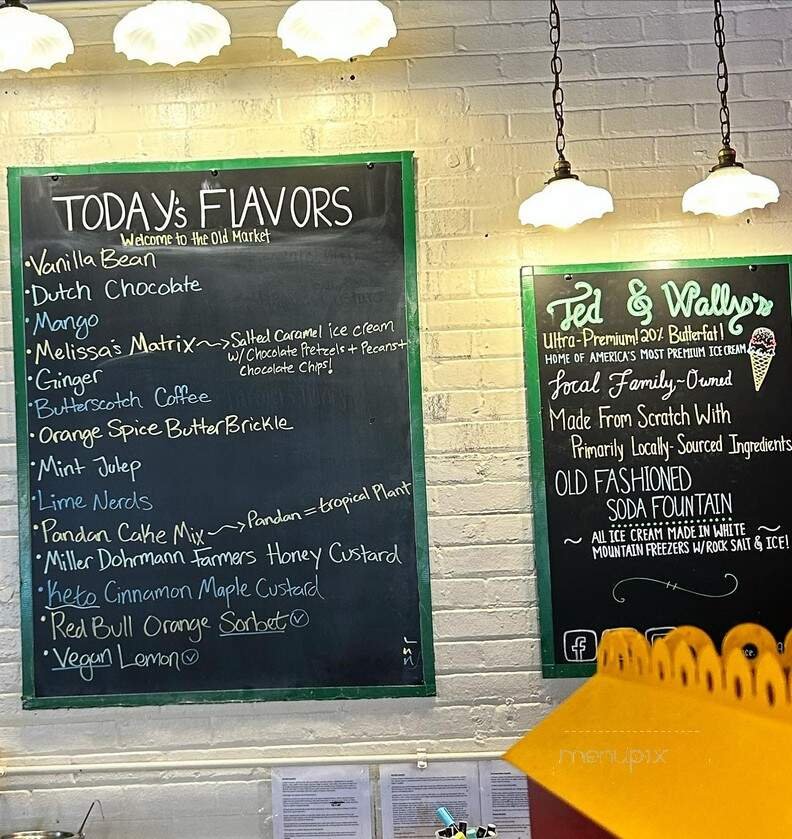 TODAY's FLAVORS
Welcome to the Old Market
• Vanilla Bean
• Dutch Chocolate
• Mango
• Melissa's Matrix → Salted Caramel ice cream
w/ Chocolate Pretzels + Pecans +
chocolate Chips!
• Ginger
• Butterscotch Coffee
• Orange Spice ButterBrickle
• Mint Julep
• Lime Nerds
• Pandan Cake Mix → Pandan = tropical Plant
• Miller Dohrmann Farmers Honey Custard
• Keto Cinnamon Maple Custard
• Red Bull Orange Sorbet Ⓥ
• Vegan Lemon Ⓥ
Ted & Wally's
Ultra-Premium! 20% Butterfat!
HOME OF AMERICA'S MOST PREMIUM ICE CREAM
Local Family-Owned
Made From Scratch With
Primarily Locally-Sourced Ingredients
OLD FASHIONED
SODA FOUNTAIN
~ ALL ICE CREAM MADE IN WHITE ~
MOUNTAIN FREEZERS W/ROCK SALT & ICE!
f
menupix